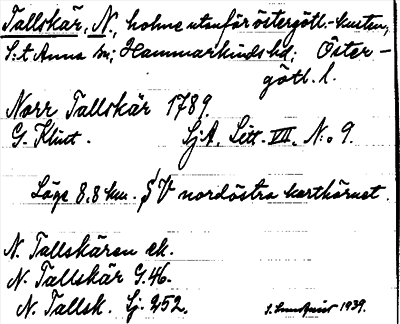 Tallskär, N., holme utanför östergötl.-kusten,
S:t Anna sn; Hammarkinds hd; Öster-
götl. l.
Norr Tallskär 1789.
G. Klint. SjA. Litt. VII. N:o 9.
Läge 8,8 km. S V nordöstra karthörnet.
N. Tallskären ek.
N. Tallskär G.46.
N. Tallsk. Sj. 252.
1939.